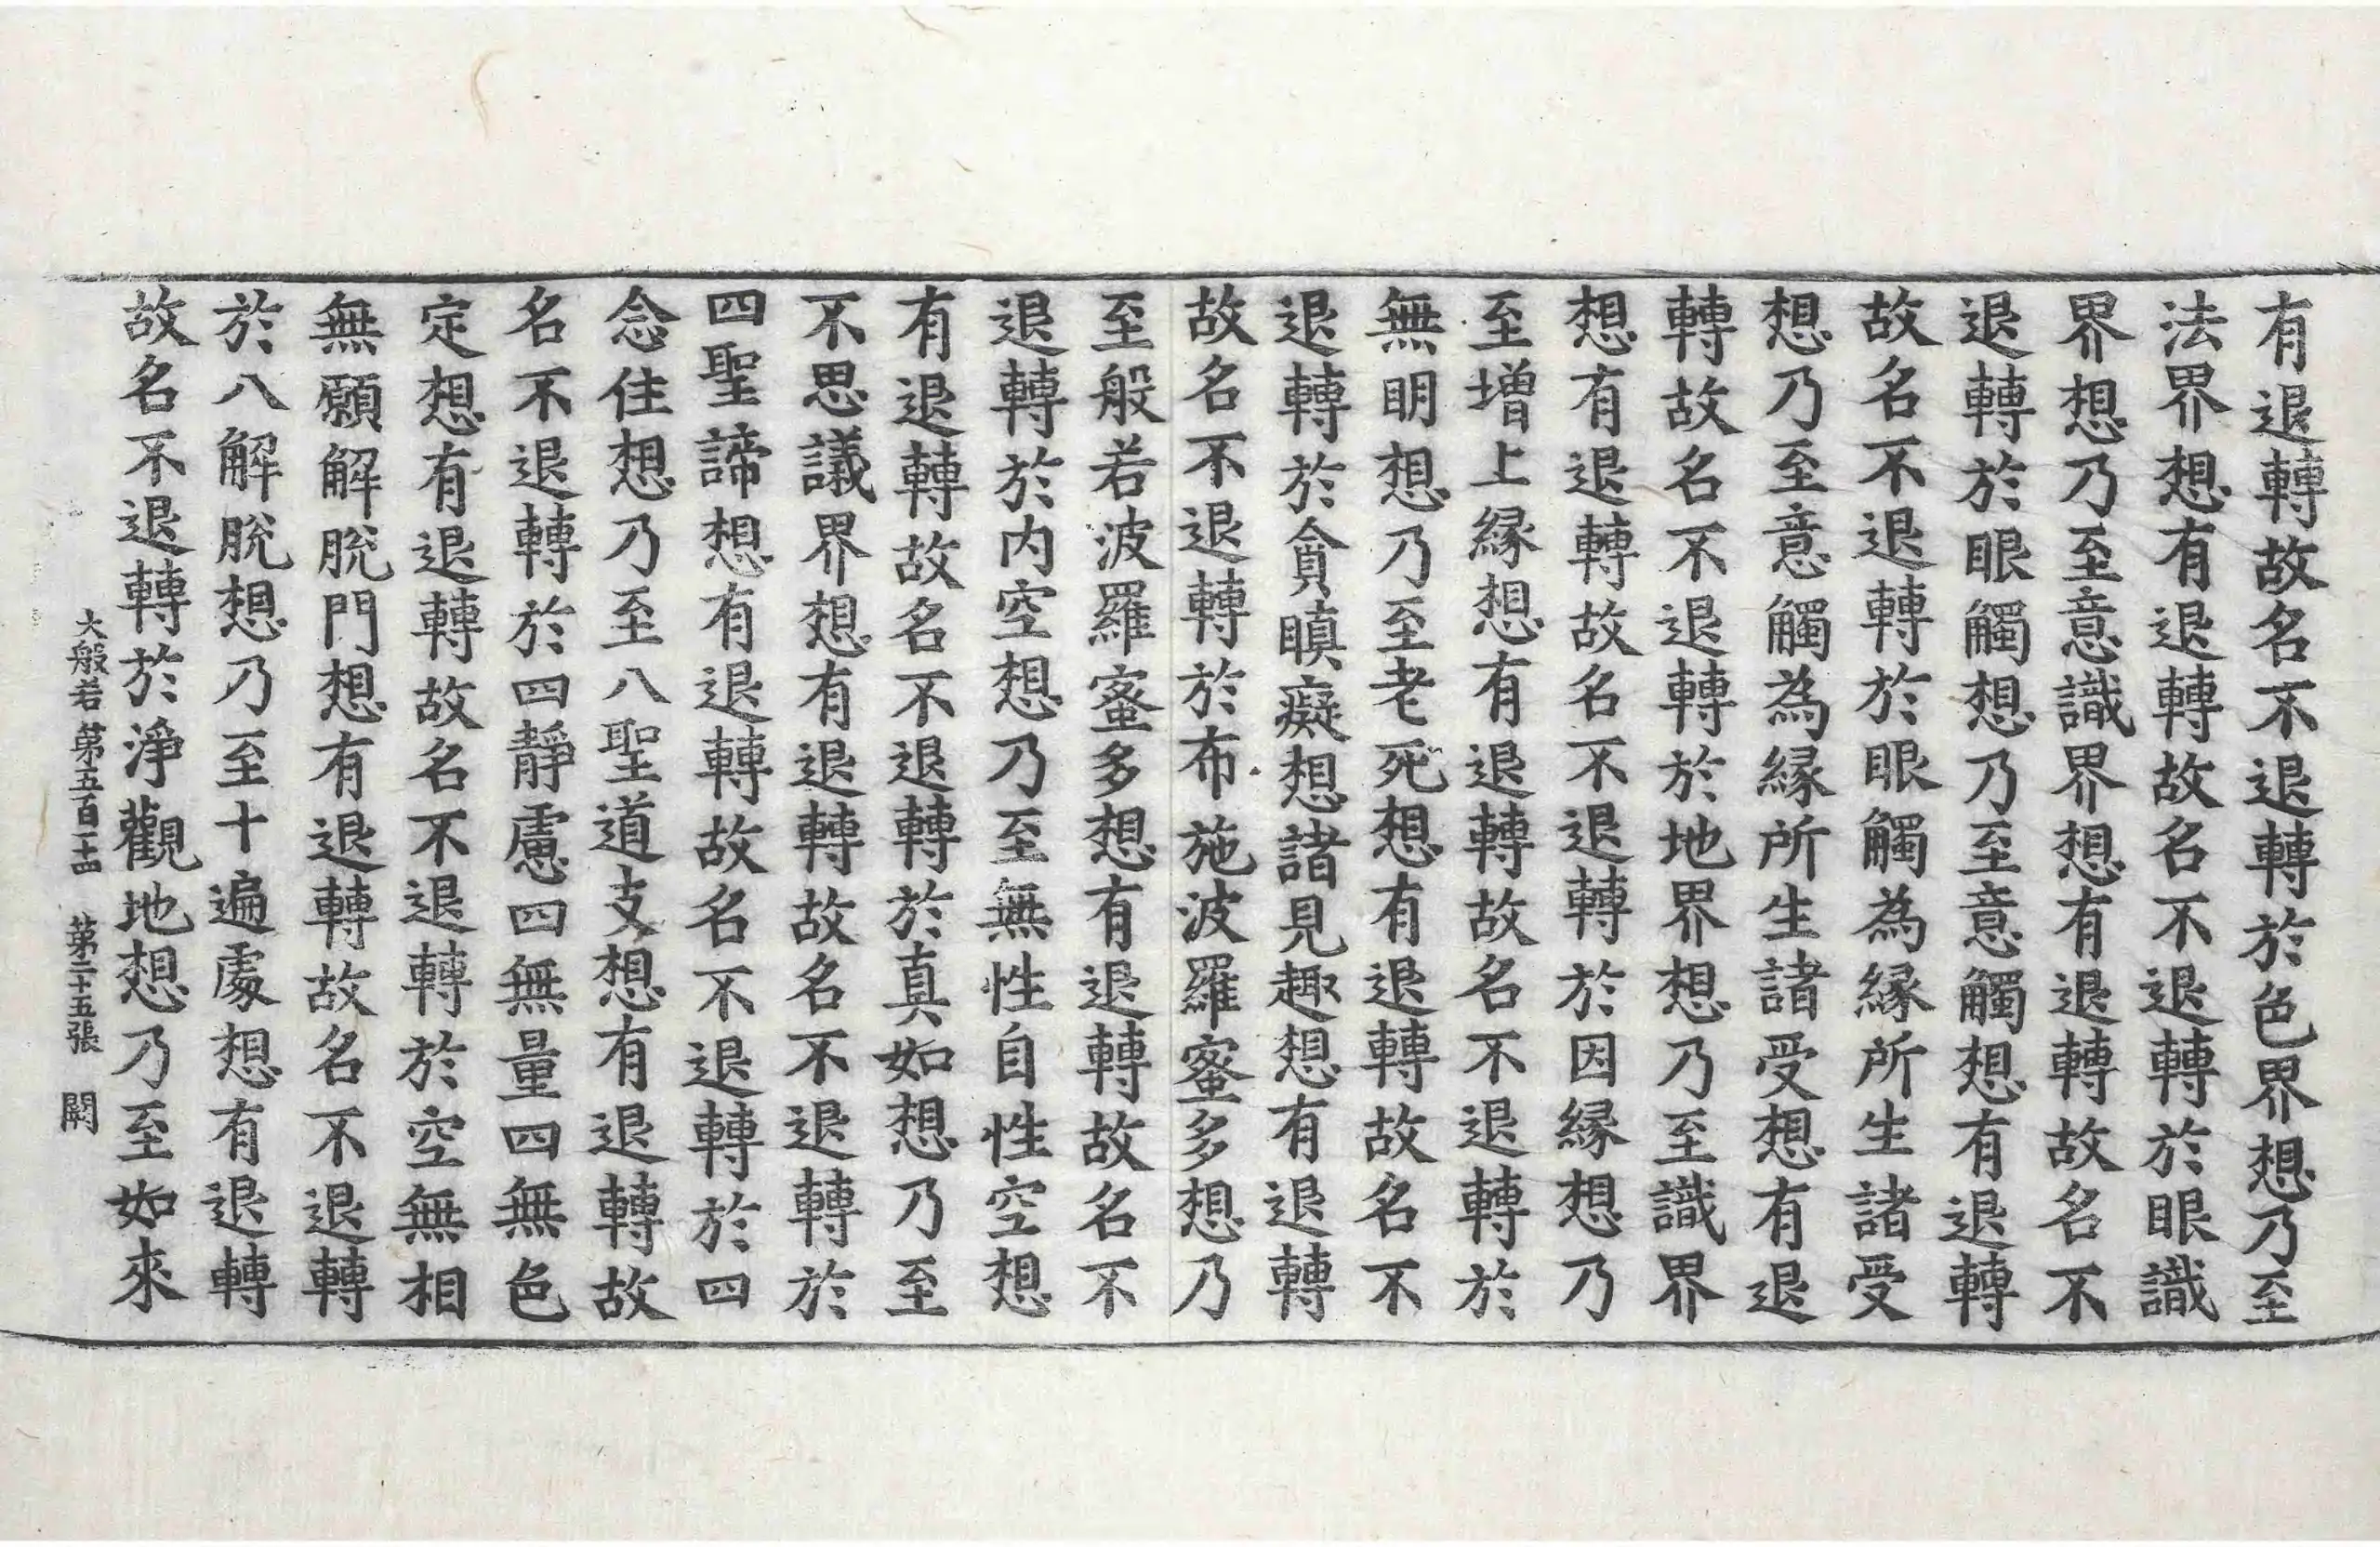 有退轉故名不退轉於色界想乃至
法界想有退轉故名不退轉於眼識
界想乃至意識界想有退轉故名不
退轉於眼觸想乃至意觸想有退轉
故名不退轉於眼觸為緣所生諸受
想乃至意觸為緣所生諸受想有退
轉故名不退轉於地界想乃至識界
想有退轉故名不退轉於因緣想乃
至增上緣想有退轉故名不退轉於
無明想乃至老死想有退轉故名不
退轉於貪瞋癡想諸見趣想有退轉
故名不退轉於布施波羅蜜多想乃
至般若波羅蜜多想有退轉故名不
退轉於內空想乃至無性自性空想
有退轉故名不退轉於真如想乃至
不思議界想有退轉故名不退轉於
四聖諦想有退轉故名不退轉於四
念住想乃至八聖道支想有退轉故
名不退轉於四靜慮四無量四無色
定想有退轉故名不退轉於空無相
無願解脫門想有退轉故名不退轉
於八解脫想乃至十遍處想有退轉
故名不退轉於淨觀地想乃至如來
大般若第五百一十四 第二十五張 闕